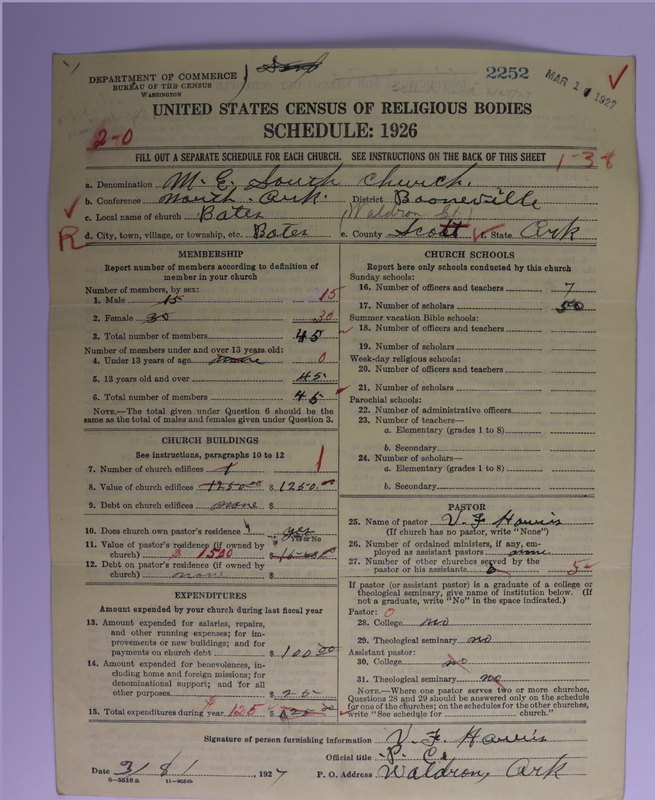 DEPARTMENT OF COMMERCE
BUREAU OF THE CENSUS
WASHINGTON
2252
MAR 1 1927
UNITED STATES CENSUS OF RELIGIOUS BODIES
SCHEDULE: 1926
2-0
FILL OUT A SEPARATE SCHEDULE FOR EACH CHURCH. SEE INSTRUCTIONS ON THE BACK OF THIS SHEET
1-38
a. Denomination M. E. South Church.
b. Conference North Ark. District Booneville
c. Local name of church Bates (Waldron Ct.)
R d. City, town, village, or township, etc. Bates e. County Scott f. State Ark
MEMBERSHIP
Report number of members according to definition of member in your church
Number of members, by sex:
1. Male 15 15
2. Female 30 30
3. Total number of members 45
Number of members under and over 13 years old:
4. Under 13 years of age none 0
5. 13 years old and over 45
6. Total number of members 45
NOTE.—The total given under Question 6 should be the same as the total of males and females given under Question 3.
CHURCH BUILDINGS
See instructions, paragraphs 10 to 12
7. Number of church edifices 1 1
8. Value of church edifices 1250.00 $ 1250.00
9. Debt on church edifices none $
10. Does church own pastor's residence yes
Yes or No
11. Value of pastor's residence (if owned by church) $ 1500 $
12. Debt on pastor's residence (if owned by church) none $
EXPENDITURES
Amount expended by your church during last fiscal year
13. Amount expended for salaries, repairs, and other running expenses; for improvements or new buildings; and for payments on church debt $ 100.00
14. Amount expended for benevolences, including home and foreign missions; for denominational support; and for all other purposes $ 25
15. Total expenditures during year 125 $ 125.00
CHURCH SCHOOLS
Report here only schools conducted by this church
Sunday schools:
16. Number of officers and teachers 7
17. Number of scholars 50
Summer vacation Bible schools:
18. Number of officers and teachers
19. Number of scholars
Week-day religious schools:
20. Number of officers and teachers
21. Number of scholars
Parochial schools:
22. Number of administrative officers
23. Number of teachers—
a. Elementary (grades 1 to 8)
b. Secondary
24. Number of scholars—
a. Elementary (grades 1 to 8)
b. Secondary
PASTOR
25. Name of pastor V. F. Harris
(If church has no pastor, write "None")
26. Number of ordained ministers, if any, employed as assistant pastors none
27. Number of other churches served by the pastor or his assistants 6 5
If pastor (or assistant pastor) is a graduate of a college or theological seminary, give name of institution below. (If not a graduate, write "No" in the space indicated.)
Pastor: 0
28. College no
29. Theological seminary no
Assistant pastor:
30. College no
31. Theological seminary no
NOTE.—Where one pastor serves two or more churches, Questions 28 and 29 should be answered only on the schedule for one of the churches; on the schedules for the other churches, write "See schedule for church."
Signature of person furnishing information V. F. Harris
Official title P. C.
Date 3/8/, 1927 P. O. Address Waldron, Ark
8—5518a 11—9554b